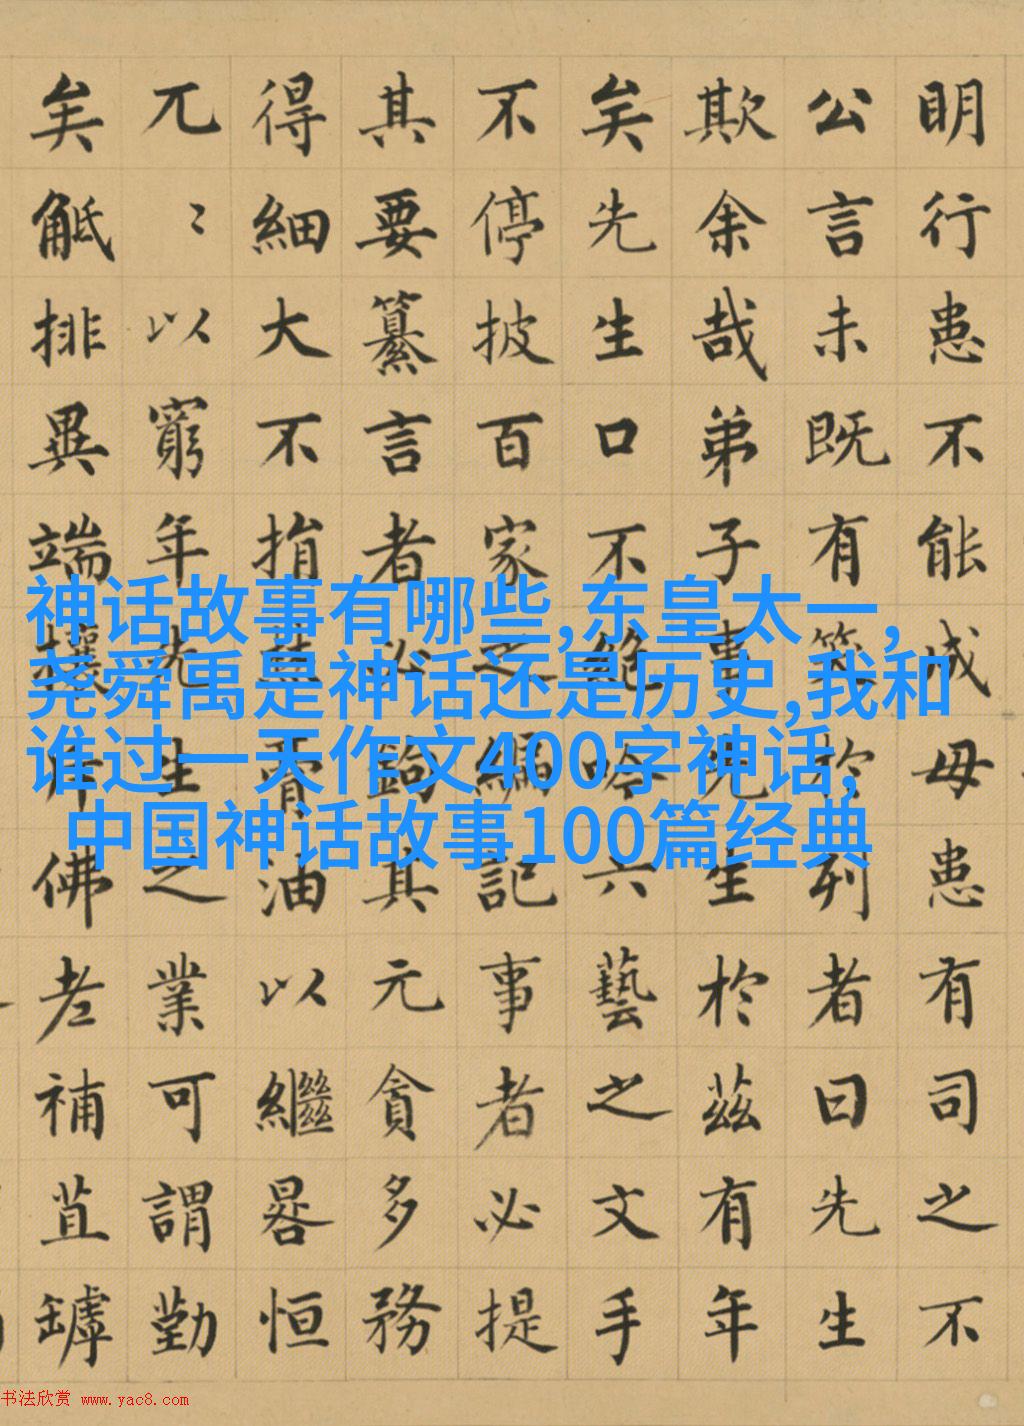 明行患不能成毋患有司之不
公言未既有笑於列者曰先生
欺余哉弟子事先生於茲有年
矣先生口不絕吟六藝之文手
不停披百家之編記事者必提
其要纂言者必鉤其元貪多務
得細大不捐焚膏油以繼晷恒
兀〻以窮年先生之業可謂勤
矣觝排異端攘斥佛老補苴罅
神话故事有哪些,东皇太一,
尧舜禹是神话还是历史,我和
谁过一天作文400字神话,
中国神话故事100篇经典
书法欣赏 www.yac8.com